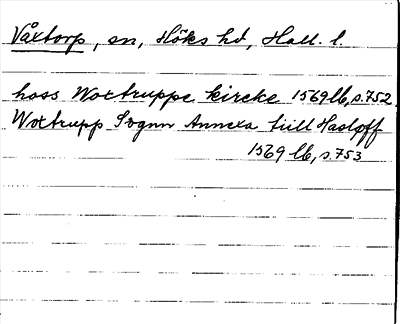 Våxtorp, sn, Höks hd, Hall. l.
hoss Woxtruppe kircke 1569 lb, s. 752.
Woxtrupp Sognn Annexa tiill Hasløff
1569 lb, s. 753